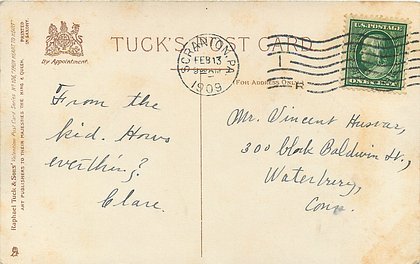 TUCK'S POST CARD
By Appointment.
PRINTED
IN SAXONY
Raphael Tuck & Sons' "Valentine Post Card" Series No.
ART PUBLISHERS TO THEIR MAJESTIES THE KING & QUEEN.
SCRANTON, PA.
FEB 13
1909
R
U.S. POSTAGE
ONE CENT
(FOR ADDRESS ONLY.)
From the
kid. Hows
everthing?
Clare.
Mr. Vincent
300 block Baldwin St.,
Waterbury,
Conn.